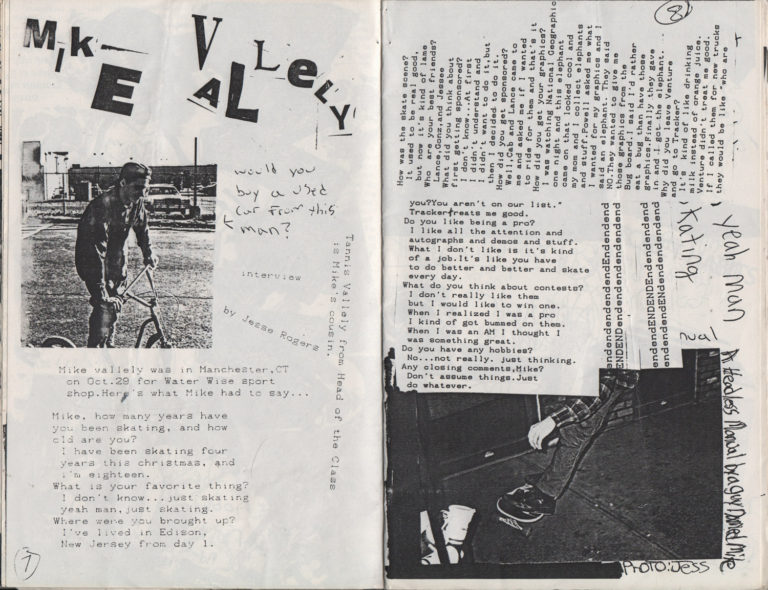 Mike
VALLELY
would you
buy a used
car from this
man?
interview
by Jesse Rogers
Tannis Vallely from Head of the Class
is Mike's cousin.
Mike vallely was in Manchester,CT
on Oct.29 for Water Wise sport
shop.Here's what Mike had to say...
Mike, how many years have
you been skating, and how
old are you?
I have been skating four
years this christmas, and
i'm eighteen.
What is your favorite thing?
I don't know...just skating
yeah man,just skating.
Where were you brought up?
I've lived in Edison,
New Jersey from day 1.
7
8
How was the skate scene?
It used to be real good,
but now it's kind of lame
Who are your best friends?
Shance,Gonz,and Jessee
What did you think about
first getting sponsored?
I don't know...At first
I didn't understand and
I didn't want to do it,but
then I decided to do it.
How did you get sponsored?
Well,Cab and Lance came to
me and asked me if I wanted
to ride for them and that's it
How did you get your graphics?
I was watching National Geographic
one night and this elephant
came on that looked cool and
my mom and I collect elephants
and stuff.Powell asked me what
I wanted for my graphics and I
said an elephant. They said
NO.They wanted to give me
those graphics from the
Bug board.I said I'd rather
eat a bug than have those
graphics.Finally they gave
in and I got the elephant.
Why did you leave Venture
and go to Tracker?
It's kind of like drinking
milk instead of orange juice.
Venture didn't treat me good.
If I called them for new trucks
they would be like,"who are
you?You aren't on our list."
Tracker treats me good.
Do you like being a pro?
I like all the attention and
autographs and demos and stuff.
What I don't like is it's kind
of a job.It's like you have
to do better and better and skate
every day.
What do you think about contests?
I don't really like them
but I would like to win one.
When I realized I was a pro
I kind of got bummed on them.
When I was an AM I thought I
was something great.
Do you have any hobbies?
No...not really. just thinking.
Any closing comments,Mike?
Don't assume things.Just
do whatever.
yeah man
kating
Photo:Jess